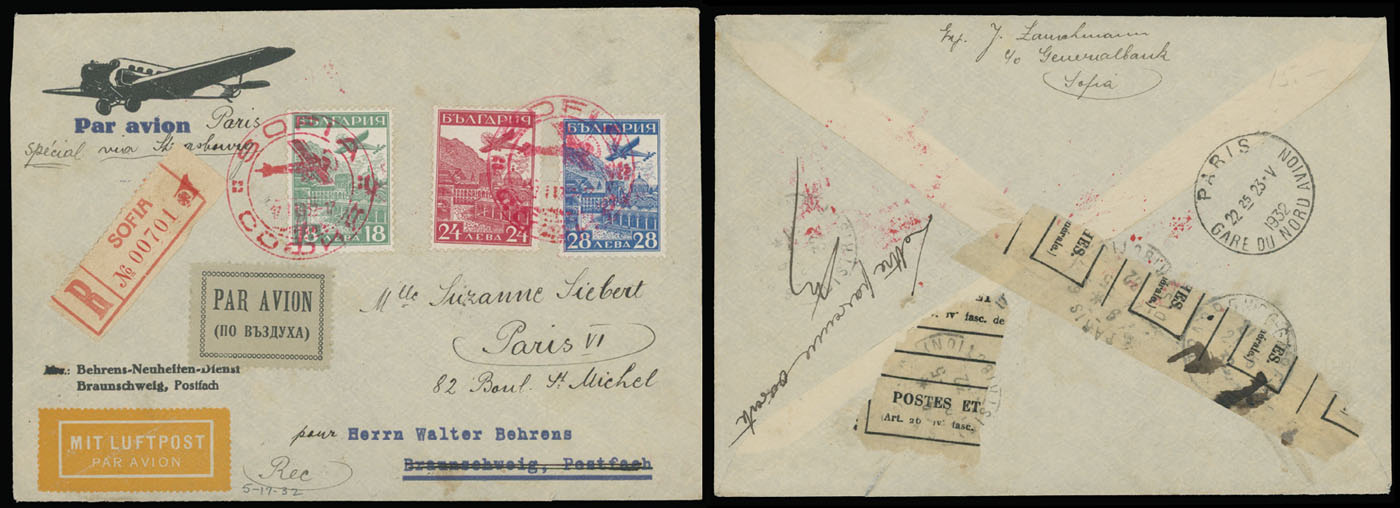 Par avion Paris
spécial via Strasbourg
R
SOFIA
№ 00701
SOFIA
БЪЛГАРИЯ
18 ЛЕВА 18
БЪЛГАРИЯ
24 ЛЕВА 24
SOFIA
БЪЛГАРИЯ
28 ЛЕВА 28
PAR AVION
(ПО ВЪЗДУХА)
Mlle Suzanne Siebert
Paris VI
82 Boul. St. Michel
Abs.: Behrens-Neuheiten-Dienst
Braunschweig, Postfach
MIT LUFTPOST
PAR AVION
pour Herrn Walter Behrens
Braunschweig, Postfach
Rec
5-17-32
Exp. J.
c/o Generalbank
Sofia
PARIS
22 25 23-V
1932
GARE DU NORD AVION
Lettre parvenue ouverte
TES.
TES.
TES.
fasc. de
POSTES ET
(Art. 20 IV fasc.
PARIS